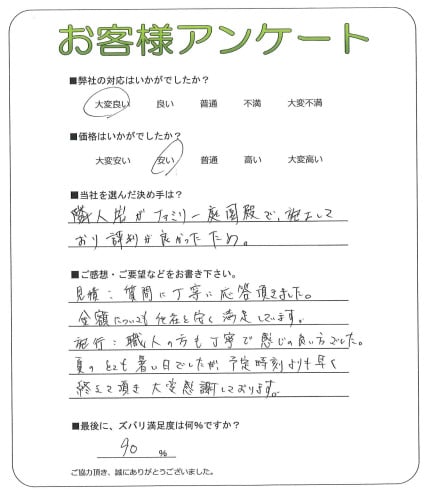 お客様アンケート
■弊社の対応はいかがでしたか？
大変良い 良い 普通 不満 大変不満
■価格はいかがでしたか？
大変安い 安い 普通 高い 大変高い
■当社を選んだ決め手は？
職人岩がファミリー庭園殿で、施工して
おり評判が良かったため。
■ご感想・ご要望などをお書き下さい。
見積：質問に丁寧に応答頂きました。
金額についても他社と安く満足しています。
施行：職人の方も丁寧で感じの良い方でした。
夏のとても暑い日でしたが、予定時刻よりも早く
終えて頂き大変感謝しております。
■最後に、ズバリ満足度は何％ですか？
90 %
ご協力頂き、誠にありがとうございました。